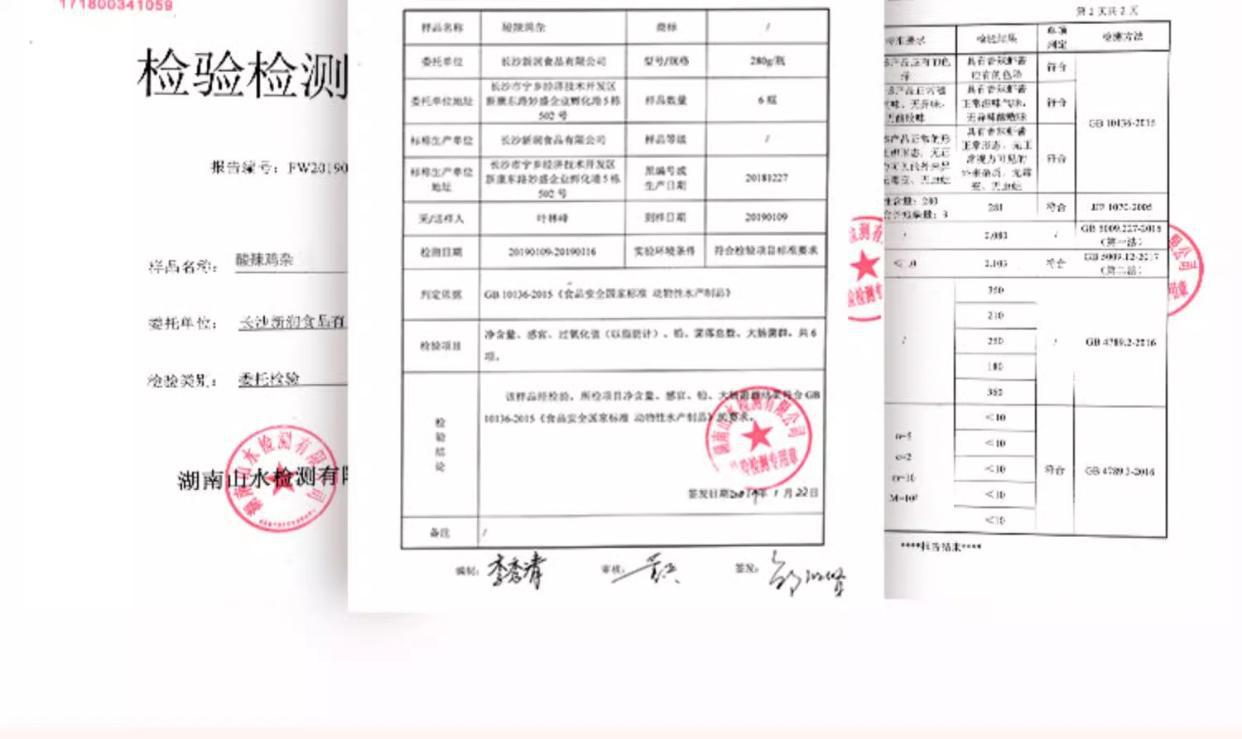 171800341059
检验检测
报告编号：FW20190
样品名称：酸辣鸡杂
委托单位：长沙新润食品有
检验类别：委托检验
湖南山水检测有
样品名称 酸辣鸡杂 商标 /
委托单位 长沙新润食品有限公司 型号/规格 280g/瓶
委托单位地址 长沙市宁乡经济技术开发区
新康东路妙盛企业孵化港5栋
502号
样品数量 6瓶
标称生产单位 长沙新润食品有限公司 样品等级 /
标称生产单位
地址
长沙市宁乡经济技术开发区
新康东路妙盛企业孵化港5栋
502号
原编号或
生产日期
20181227
采/送样人 叶林峰 到样日期 20190109
检测日期 20190109-20190116 实验环境条件 符合检验项目标准要求
判定依据 GB 10136-2015《食品安全国家标准 动物性水产制品》
检验项目 净含量、感官、过氧化值（以脂肪计）、铅、菌落总数、大肠菌群。共6
项。
检
验
结
论
该样品经检验，所检项目净含量、感官、铅、大肠菌群结果符合GB
10136-2015《食品安全国家标准 动物性水产制品》的要求。
签发日期2019年1月22日
备注 /
编制：李秀清 审核： 签发：
第2页共2页
标准要求 检验结果 单项
判定
检测方法
具有香辣虾酱
应有的色泽
符合
具有香辣虾酱
正常滋味气味，
无异味酸败味
符合
GB 10136-2015
具有香辣虾酱
正常形态，无正
常视力可见的
外来杂质，无霉
变、无虫蛀
符合
281 符合 JJF 1070-2005
/ / GB 5009.227-2016
（第一法）
符合 GB 5009.12-2017
（第二法）
350
210
250
180
360
/ / GB 4789.2-2016
n=5
c=2
m=10
<10
<10
<10
<10
<10
符合 GB 4789.3-2016
****报告结束****